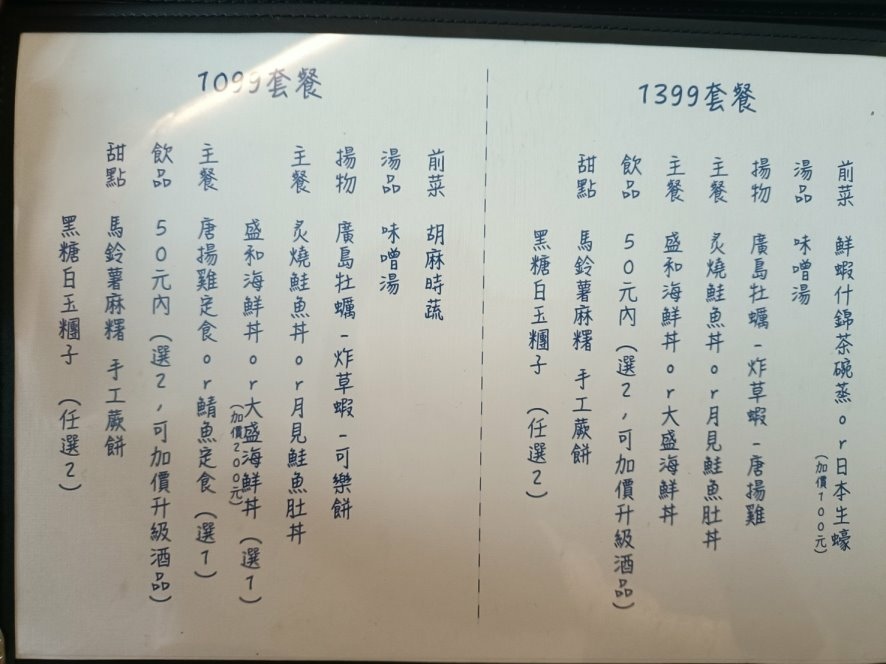 1399套餐
前菜 鮮蝦什錦茶碗蒸or日本生蠔
(加價100元)
湯品 味噌湯
揚物 廣島牡蠣-炸草蝦-唐揚雞
主餐 炙燒鮭魚丼or月見鮭魚肚丼
主餐 盛和海鮮丼or大盛海鮮丼
飲品 50元內(選2,可加價升級酒品)
甜點 馬鈴薯麻糬 手工蕨餅
黑糖白玉糰子 (任選2)
1099套餐
前菜 胡麻時蔬
湯品 味噌湯
揚物 廣島牡蠣-炸草蝦-可樂餅
主餐 炙燒鮭魚丼or月見鮭魚肚丼
盛和海鮮丼or大盛海鮮丼 (選1)
(加價200元)
主餐 唐揚雞定食or鯖魚定食 (選1)
飲品 50元內(選2,可加價升級酒品)
甜點 馬鈴薯麻糬 手工蕨餅
黑糖白玉糰子 (任選2)